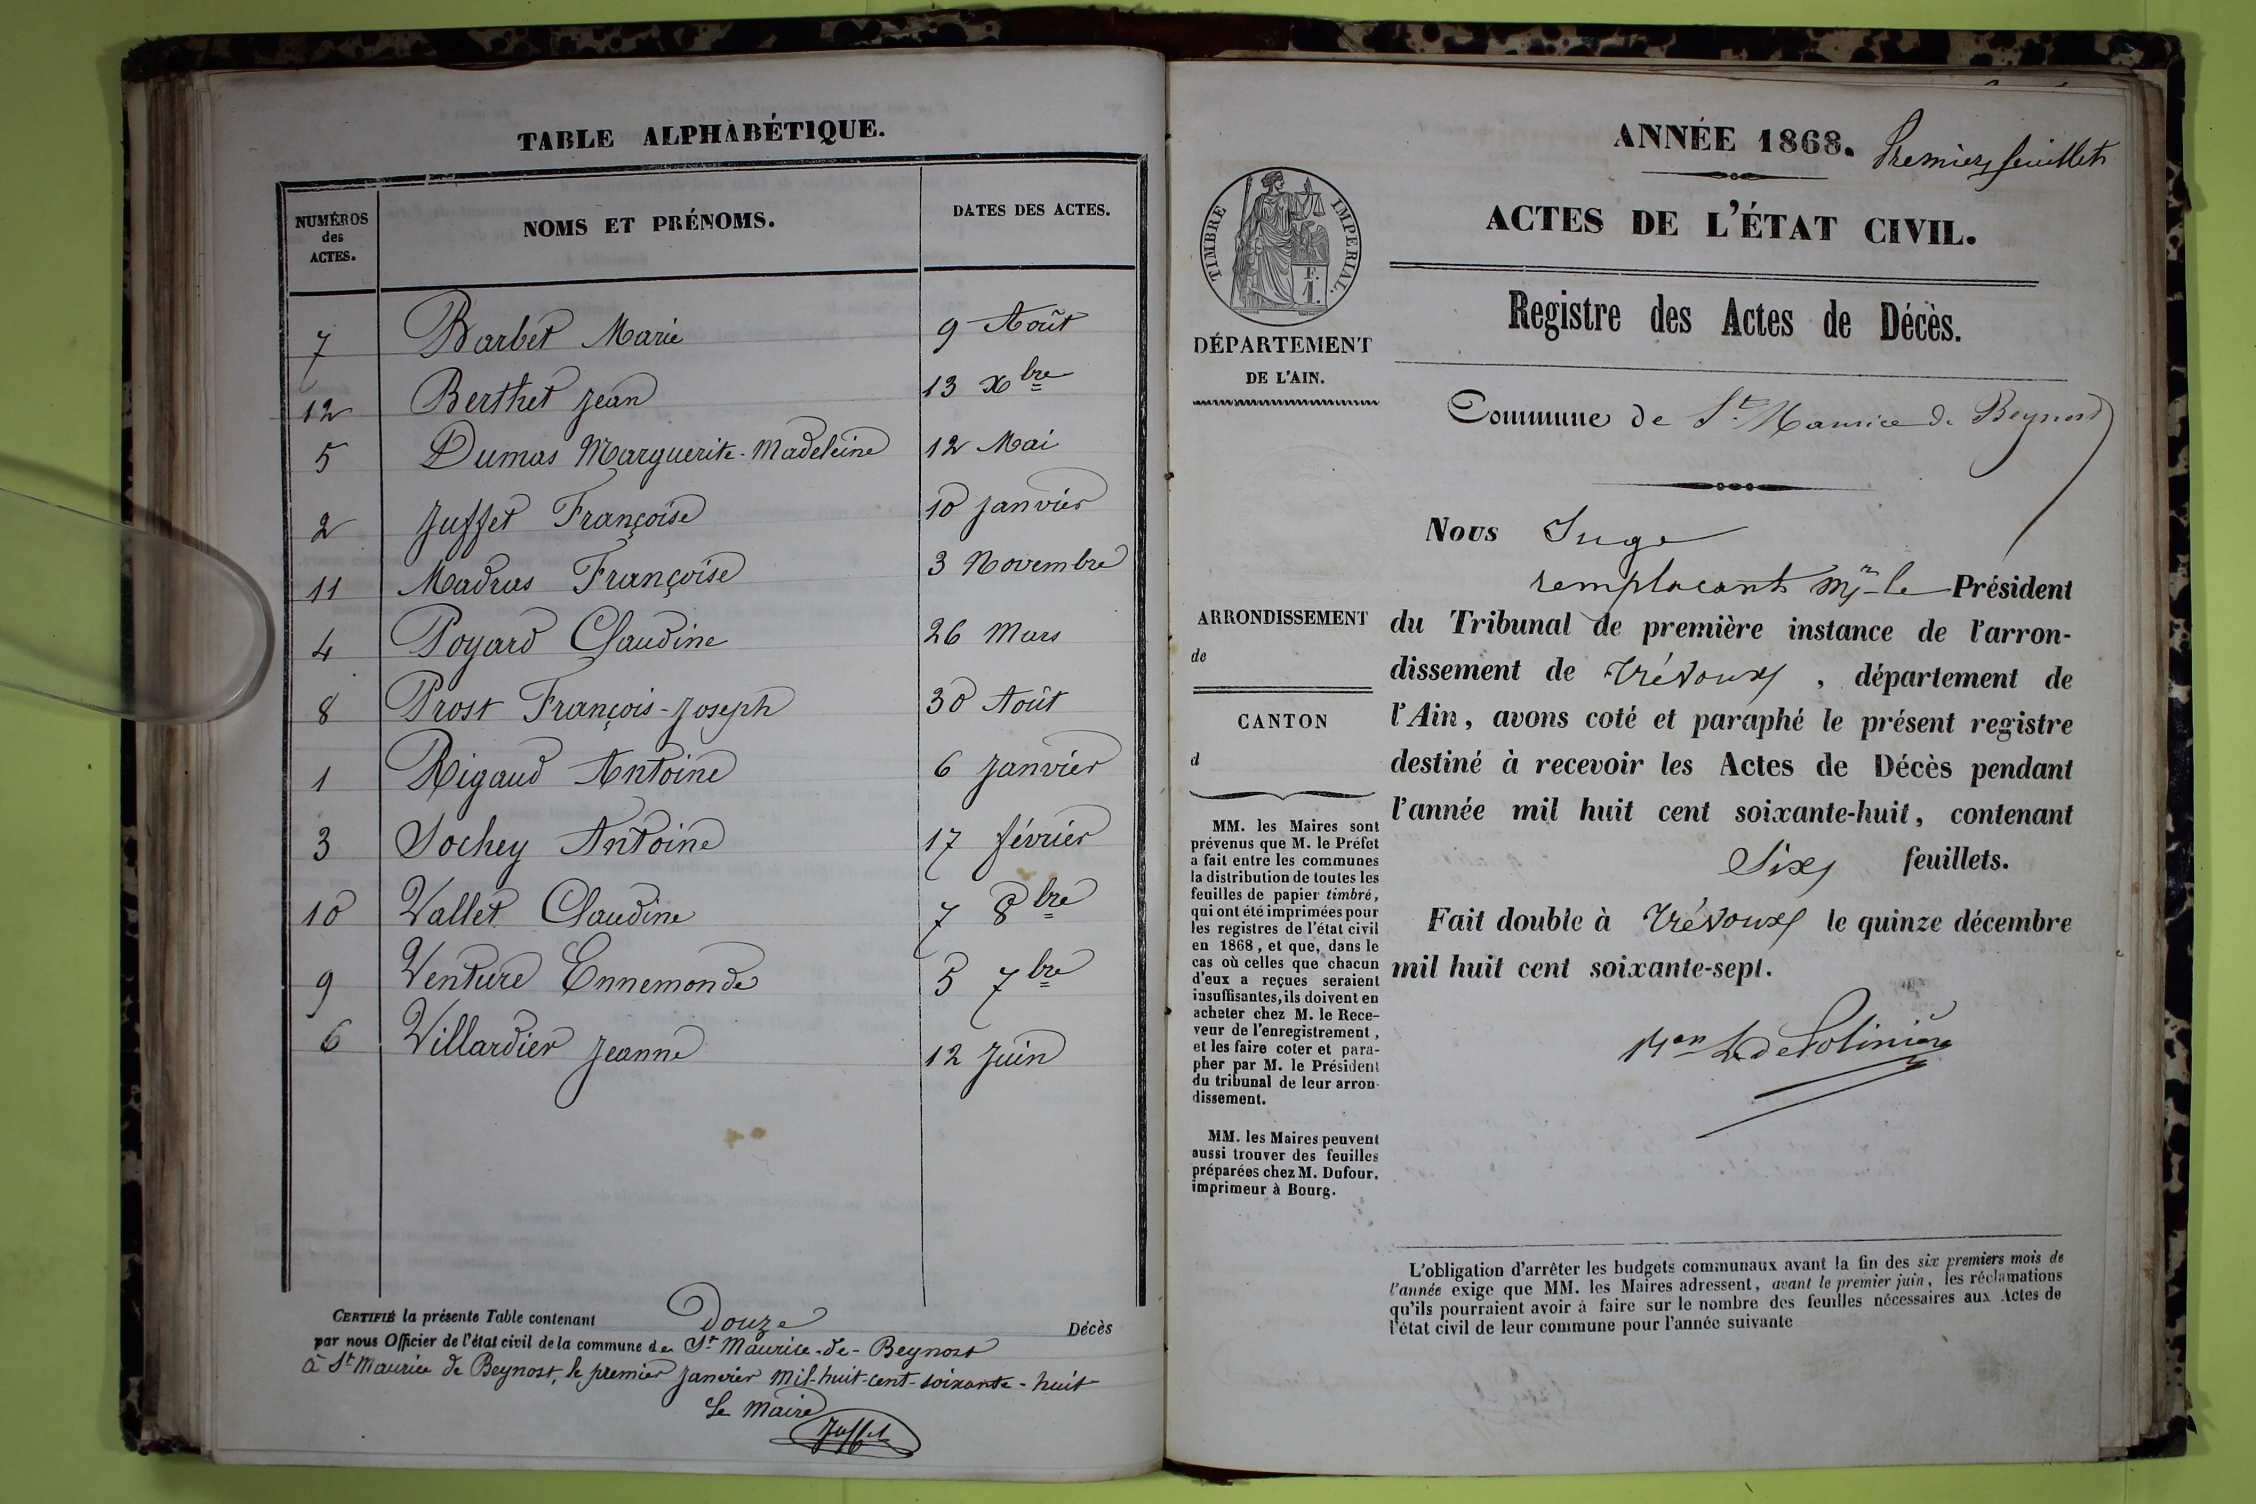 TABLE ALPHABÉTIQUE.
NUMÉROS des ACTES. NOMS ET PRÉNOMS. DATES DES ACTES.
7 Barbet Marie 9 Août
12 Berthet Jean 13 Xbre
5 Dumas Marguerite-Madeleine 12 Mai
2 Juffet Françoise 10 Janvier
11 Madras Françoise 3 Novembre
4 Poyard Claudine 26 Mars
8 Prost François-Joseph 30 Août
1 Rigaud Antoine 6 Janvier
3 Sochey Antoine 17 février
10 Vallet Claudine 7 8bre
9 Venture Ennemonde 5 7bre
6 Villardier Jeanne 12 Juin
CERTIFIÉ la présente Table contenant Douze Décès
par nous Officier de l'état civil de la commune de St Maurice-de-Beynost
à St Maurice de Beynost, le premier Janvier mil-huit-cent-soixante-huit
Le Maire
Juffet
ANNÉE 1868. Premier feuillet
ACTES DE L'ÉTAT CIVIL.
Registre des Actes de Décès.
TIMBRE IMPERIAL.
F.
1.
DÉPARTEMENT
DE L'AIN.
Commune de St Maurice de Beynost
Nous Juge
remplaçant Mr le Président
du Tribunal de première instance de l'arron-
dissement de Trévoux, département de
l'Ain, avons coté et paraphé le présent registre
destiné à recevoir les Actes de Décès pendant
l'année mil huit cent soixante-huit, contenant
Six feuillets.
Fait double à Trévoux le quinze décembre
mil huit cent soixante-sept.
ARRONDISSEMENT
de
CANTON
d
MM. les Maires sont
prévenus que M. le Préfet
a fait entre les communes
la distribution de toutes les
feuilles de papier timbré,
qui ont été imprimées pour
les registres de l'état civil
en 1868, et que, dans le
cas où celles que chacun
d'eux a reçues seraient
insuffisantes, ils doivent en
acheter chez M. le Rece-
veur de l'enregistrement,
et les faire coter et para-
pher par M. le Président
du tribunal de leur arron-
dissement.
MM. les Maires peuvent
aussi trouver des feuilles
préparées chez M. Dufour,
imprimeur à Bourg.
L'obligation d'arrêter les budgets communaux avant la fin des six premiers mois de
l'année exige que MM. les Maires adressent, avant le premier juin, les réclamations
qu'ils pourraient avoir à faire sur le nombre des feuilles nécessaires aux Actes de
l'état civil de leur commune pour l'année suivante